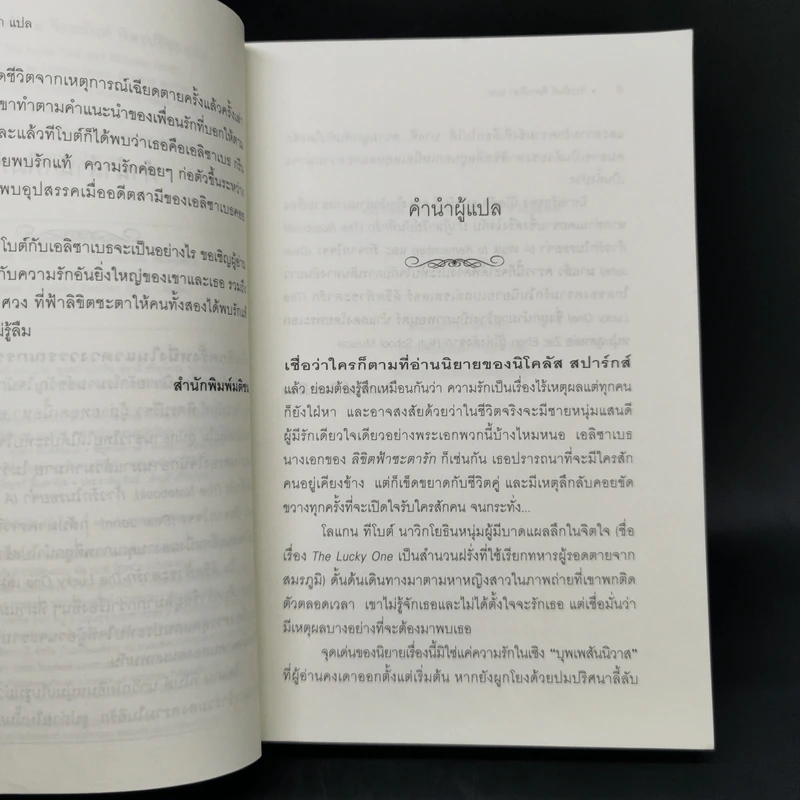 แปล
ดชีวิตจากเหตุการณ์เฉียดตายครั้งแล้วครั้งเล่า
ขาทำตามคำแนะนำของเพื่อนรักที่บอกให้ตาม
ละแล้วทีโบต์ก็ได้พบว่าเธอคือเอลิซาเบธ กรีน
ยพบรักแท้ ความรักค่อยๆ ก่อตัวขึ้นระหว่าง
พบอุปสรรคเมื่ออดีตสามีของเอลิซาเบธคอย
โบต์กับเอลิซาเบธจะเป็นอย่างไร ขอเชิญผู้อ่าน
กับความรักอันยิ่งใหญ่ของเขาและเธอ รวมถึง
ศวง ที่ฟ้าลิขิตชะตาให้คนทั้งสองได้พบรักแท้
ม่รู้ลืม
สำนักพิมพ์มติชน
คำนำผู้แปล
เชื่อว่าใครก็ตามที่อ่านนิยายของนิโคลัส สปาร์กส์
แล้ว ย่อมต้องรู้สึกเหมือนกันว่า ความรักเป็นเรื่องไร้เหตุผลแต่ทุกคน
ก็ยังใฝ่หา และอาจสงสัยด้วยว่าในชีวิตจริงจะมีชายหนุ่มแสนดี
ผู้มีรักเดียวใจเดียวอย่างพระเอกพวกนี้บ้างไหมหนอ เอลิซาเบธ
นางเอกของ ลิขิตฟ้าชะตารัก ก็เช่นกัน เธอปรารถนาที่จะมีใครสัก
คนอยู่เคียงข้าง แต่ก็เข็ดขยาดกับชีวิตคู่ และมีเหตุลึกลับคอยขัด
ขวางทุกครั้งที่จะเปิดใจรับใครสักคน จนกระทั่ง...
โลแกน ทีโบต์ นาวิกโยธินหนุ่มผู้มีบาดแผลลึกในจิตใจ (ชื่อ
เรื่อง The Lucky One เป็นสำนวนฝรั่งที่ใช้เรียกทหารผู้รอดตายจาก
สมรภูมิ) ดั้นด้นเดินทางมาตามหาหญิงสาวในภาพถ่ายที่เขาพกติด
ตัวตลอดเวลา เขาไม่รู้จักเธอและไม่ได้ตั้งใจจะรักเธอ แต่เชื่อมั่นว่า
มีเหตุผลบางอย่างที่จะต้องมาพบเธอ
จุดเด่นของนิยายเรื่องนี้มิใช่แค่ความรักในเชิง “บุพเพสันนิวาส”
ที่ผู้อ่านคงเดาออกตั้งแต่เริ่มต้น หากยังผูกโยงด้วยปมปริศนาลี้ลับ